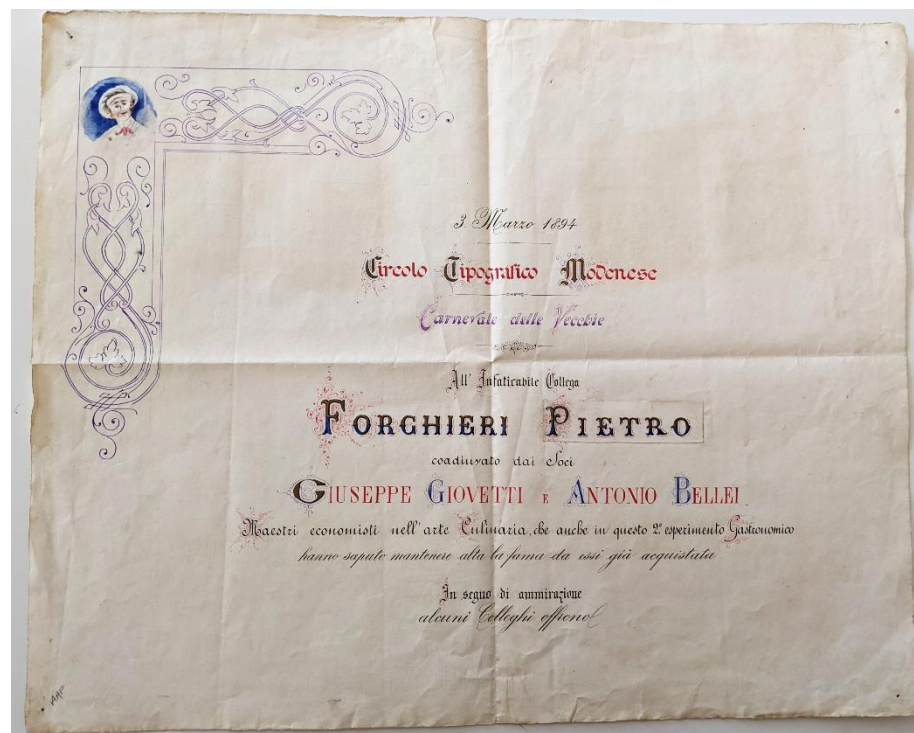 3. Marzo 1894
Circolo Tipografico Modenese
Carnevale delle Vecchie
All' Infaticabile Collega
FORGHIERI PIETRO
coadiuvato dai Soci
GIUSEPPE GIOVETTI E ANTONIO BELLEI
Maestri economisti nell'arte Culinaria, che anche in questo 2.° esperimento Gastronomico
hanno saputo mantenere alta la fama da essi già acquistata
In segno di ammirazione
alcuni Colleghi offrono